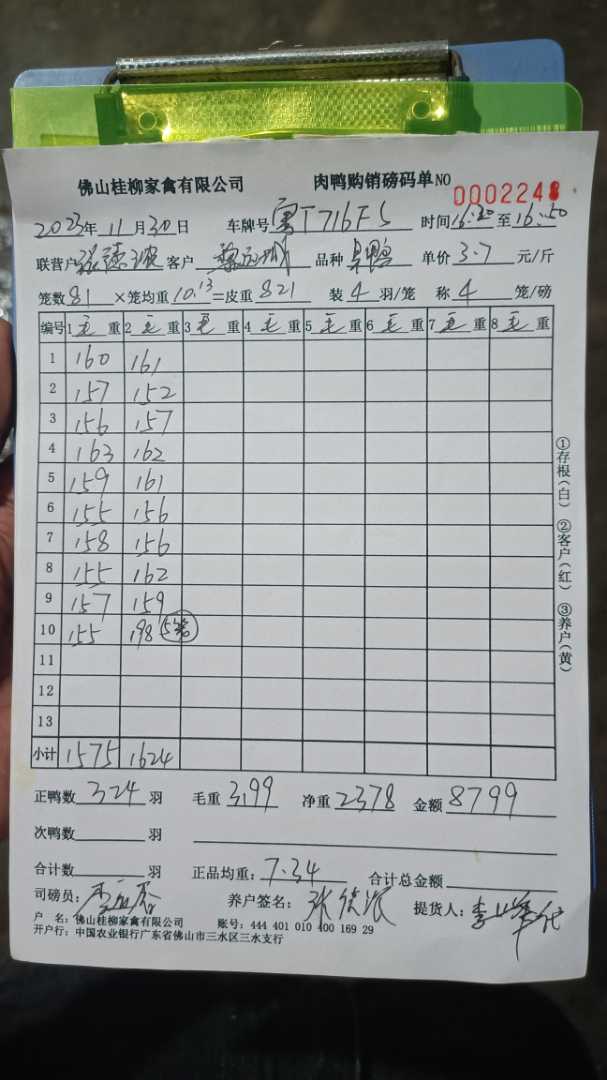 佛山桂柳家禽有限公司 肉鸭购销磅码单 NO 0002248
2023年11月30日 车牌号 粤T716F5 时间16:20至16:50
联营户 张德 客户 品种 鸭 单价3.7元/斤
笼数81×笼均重10.13=皮重821 装4羽/笼 称4笼/磅
编号 1毛重 2毛重 3毛重 4毛重 5毛重 6毛重 7毛重 8毛重
1 160 161
2 157 152
3 156 157
4 163 162
5 159 161
6 155 156
7 158 156
8 155 162
9 157 159
10 155 198 5笼
11
12
13
小计 1575 1624
正鸭数324羽 毛重3199 净重2378 金额8799
次鸭数 羽
合计数 羽 正品均重:7.34 合计总金额
司磅员: 李 养户签名: 张 提货人: 李
户 名:佛山桂柳家禽有限公司 账号:444 401 010 400 169 29
开户行:中国农业银行广东省佛山市三水区三水支行
①存根(白) ②客户(红) ③养户(黄)